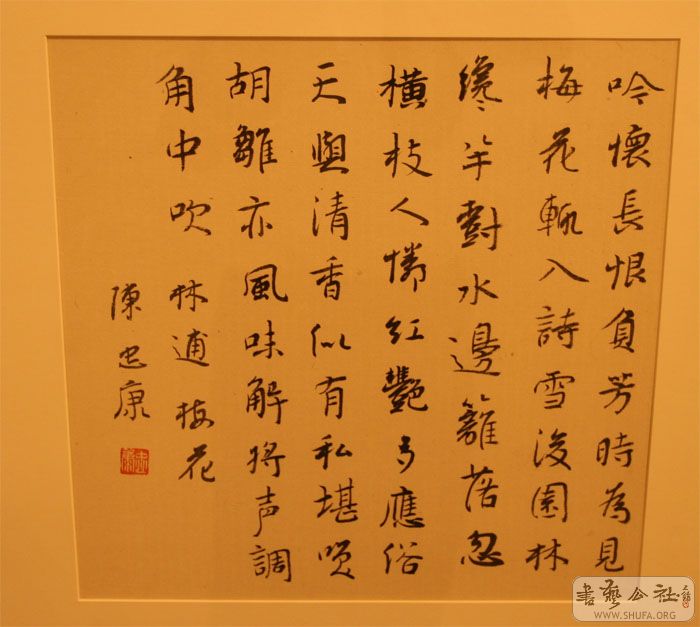 吟懷長恨負芳時為見
梅花輒入詩雪後園林
纔半樹水邊籬落忽
橫枝人憐紅艷多應俗
天與清香似有私堪笑
胡雛亦風味解將声調
角中吹 林逋梅花
陳忠康
書藝公社
WWW.SHUFA.ORG